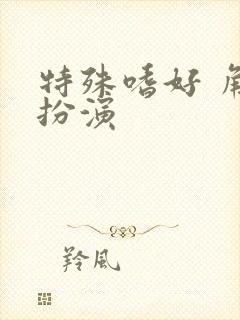 特殊嗜好 角
扮演
羚風